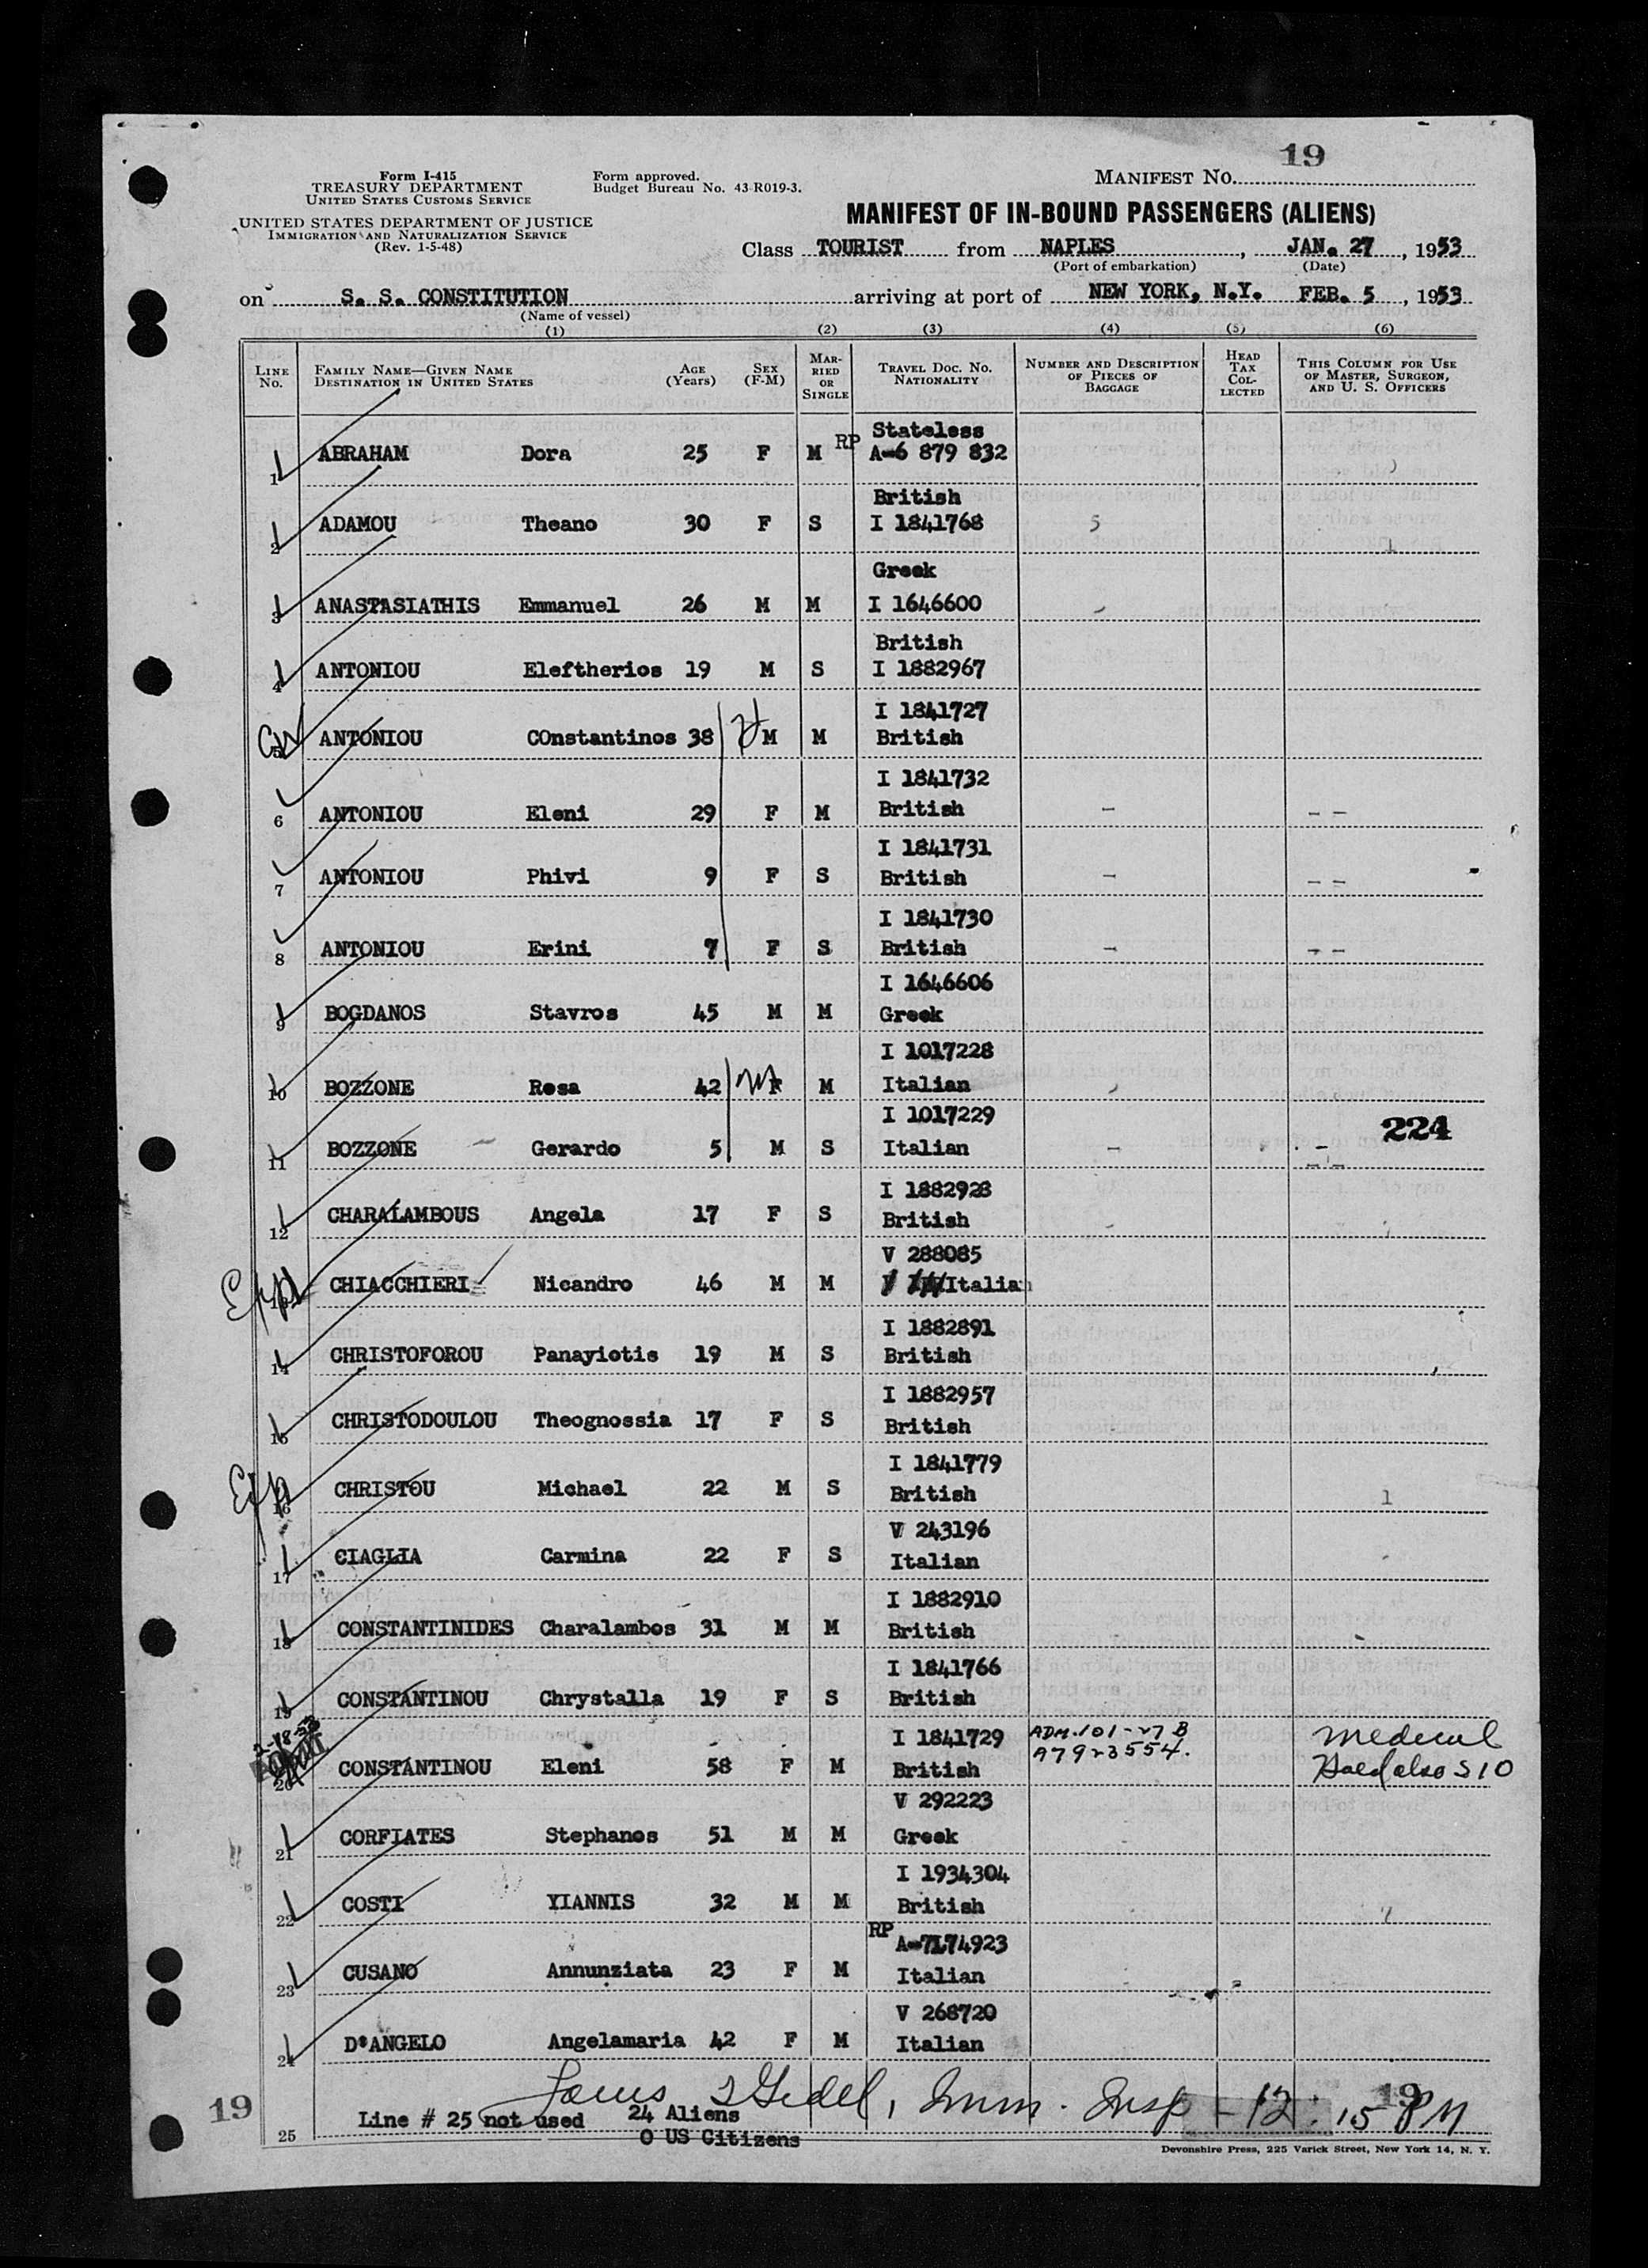 19
Form I-415
TREASURY DEPARTMENT
UNITED STATES CUSTOMS SERVICE
UNITED STATES DEPARTMENT OF JUSTICE
IMMIGRATION AND NATURALIZATION SERVICE
(Rev. 1-5-48)
Form approved.
Budget Bureau No. 43-R019-3.
MANIFEST NO.
MANIFEST OF IN-BOUND PASSENGERS (ALIENS)
Class TOURIST from NAPLES, JAN. 27, 1953
(Port of embarkation) (Date)
on S. S. CONSTITUTION arriving at port of NEW YORK, N.Y. FEB. 5, 1953
(Name of vessel)
(1) (2) (3) (4) (5) (6)
LINE NO. FAMILY NAME—GIVEN NAME DESTINATION IN UNITED STATES AGE (Years) SEX (F-M) MARRIED OR SINGLE TRAVEL DOC. NO. NATIONALITY NUMBER AND DESCRIPTION OF PIECES OF BAGGAGE HEAD TAX COLLECTED THIS COLUMN FOR USE OF MASTER, SURGEON, AND U. S. OFFICERS
Stateless
1 ABRAHAM Dora 25 F M RP A-6 879 832
British
2 ADAMOU Theano 30 F S I 1841768 5
Greek
3 ANASTASIATHIS Emmanuel 26 M M I 1646600
British
4 ANTONIOU Eleftherios 19 M S I 1882967
I 1841727
5 ANTONIOU COnstantinos 38 M M British
I 1841732
6 ANTONIOU Eleni 29 F M British - - -
I 1841731
7 ANTONIOU Phivi 9 F S British - - -
I 1841730
8 ANTONIOU Erini 7 F S British - - -
I 1646606
9 BOGDANOS Stavros 45 M M Greek
I 1017228
10 BOZZONE Rosa 42 F M Italian
I 1017229
224
11 BOZZONE Gerardo 5 M S Italian -
I 1882928
12 CHARALAMBOUS Angela 17 F S British
V 288085
13 CHIACCHIERI Nicandro 46 M M Italian
I 1882891
14 CHRISTOFOROU Panayiotis 19 M S British
I 1882957
15 CHRISTODOULOU Theognossia 17 F S British
I 1841779
16 CHRISTOU Michael 22 M S British 1
V 243196
17 CIAGLIA Carmina 22 F S Italian
I 1882910
18 CONSTANTINIDES Charalambos 31 M M British
I 1841766
19 CONSTANTINOU Chrystalla 19 F S British
2-18-53
I 1841729 ADM. 101-27 B Medical
A7923554.
20 CONSTANTINOU Eleni 58 F M British Held also S 10
V 292223
21 CORFIATES Stephanos 51 M M Greek
I 1934304
22 COSTI YIANNIS 32 M M British
RP A-7174923
23 CUSANO Annunziata 23 F M Italian
V 268720
24 D'ANGELO Angelamaria 42 F M Italian
19 Imm. Insp - 12:15 PM 19
Line # 25 not used 24 Aliens
25 0 US Citizens
Devonshire Press, 225 Varick Street, New York 14, N. Y.